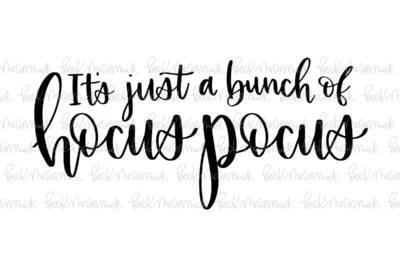 It's just a bunch of
hocus pocus